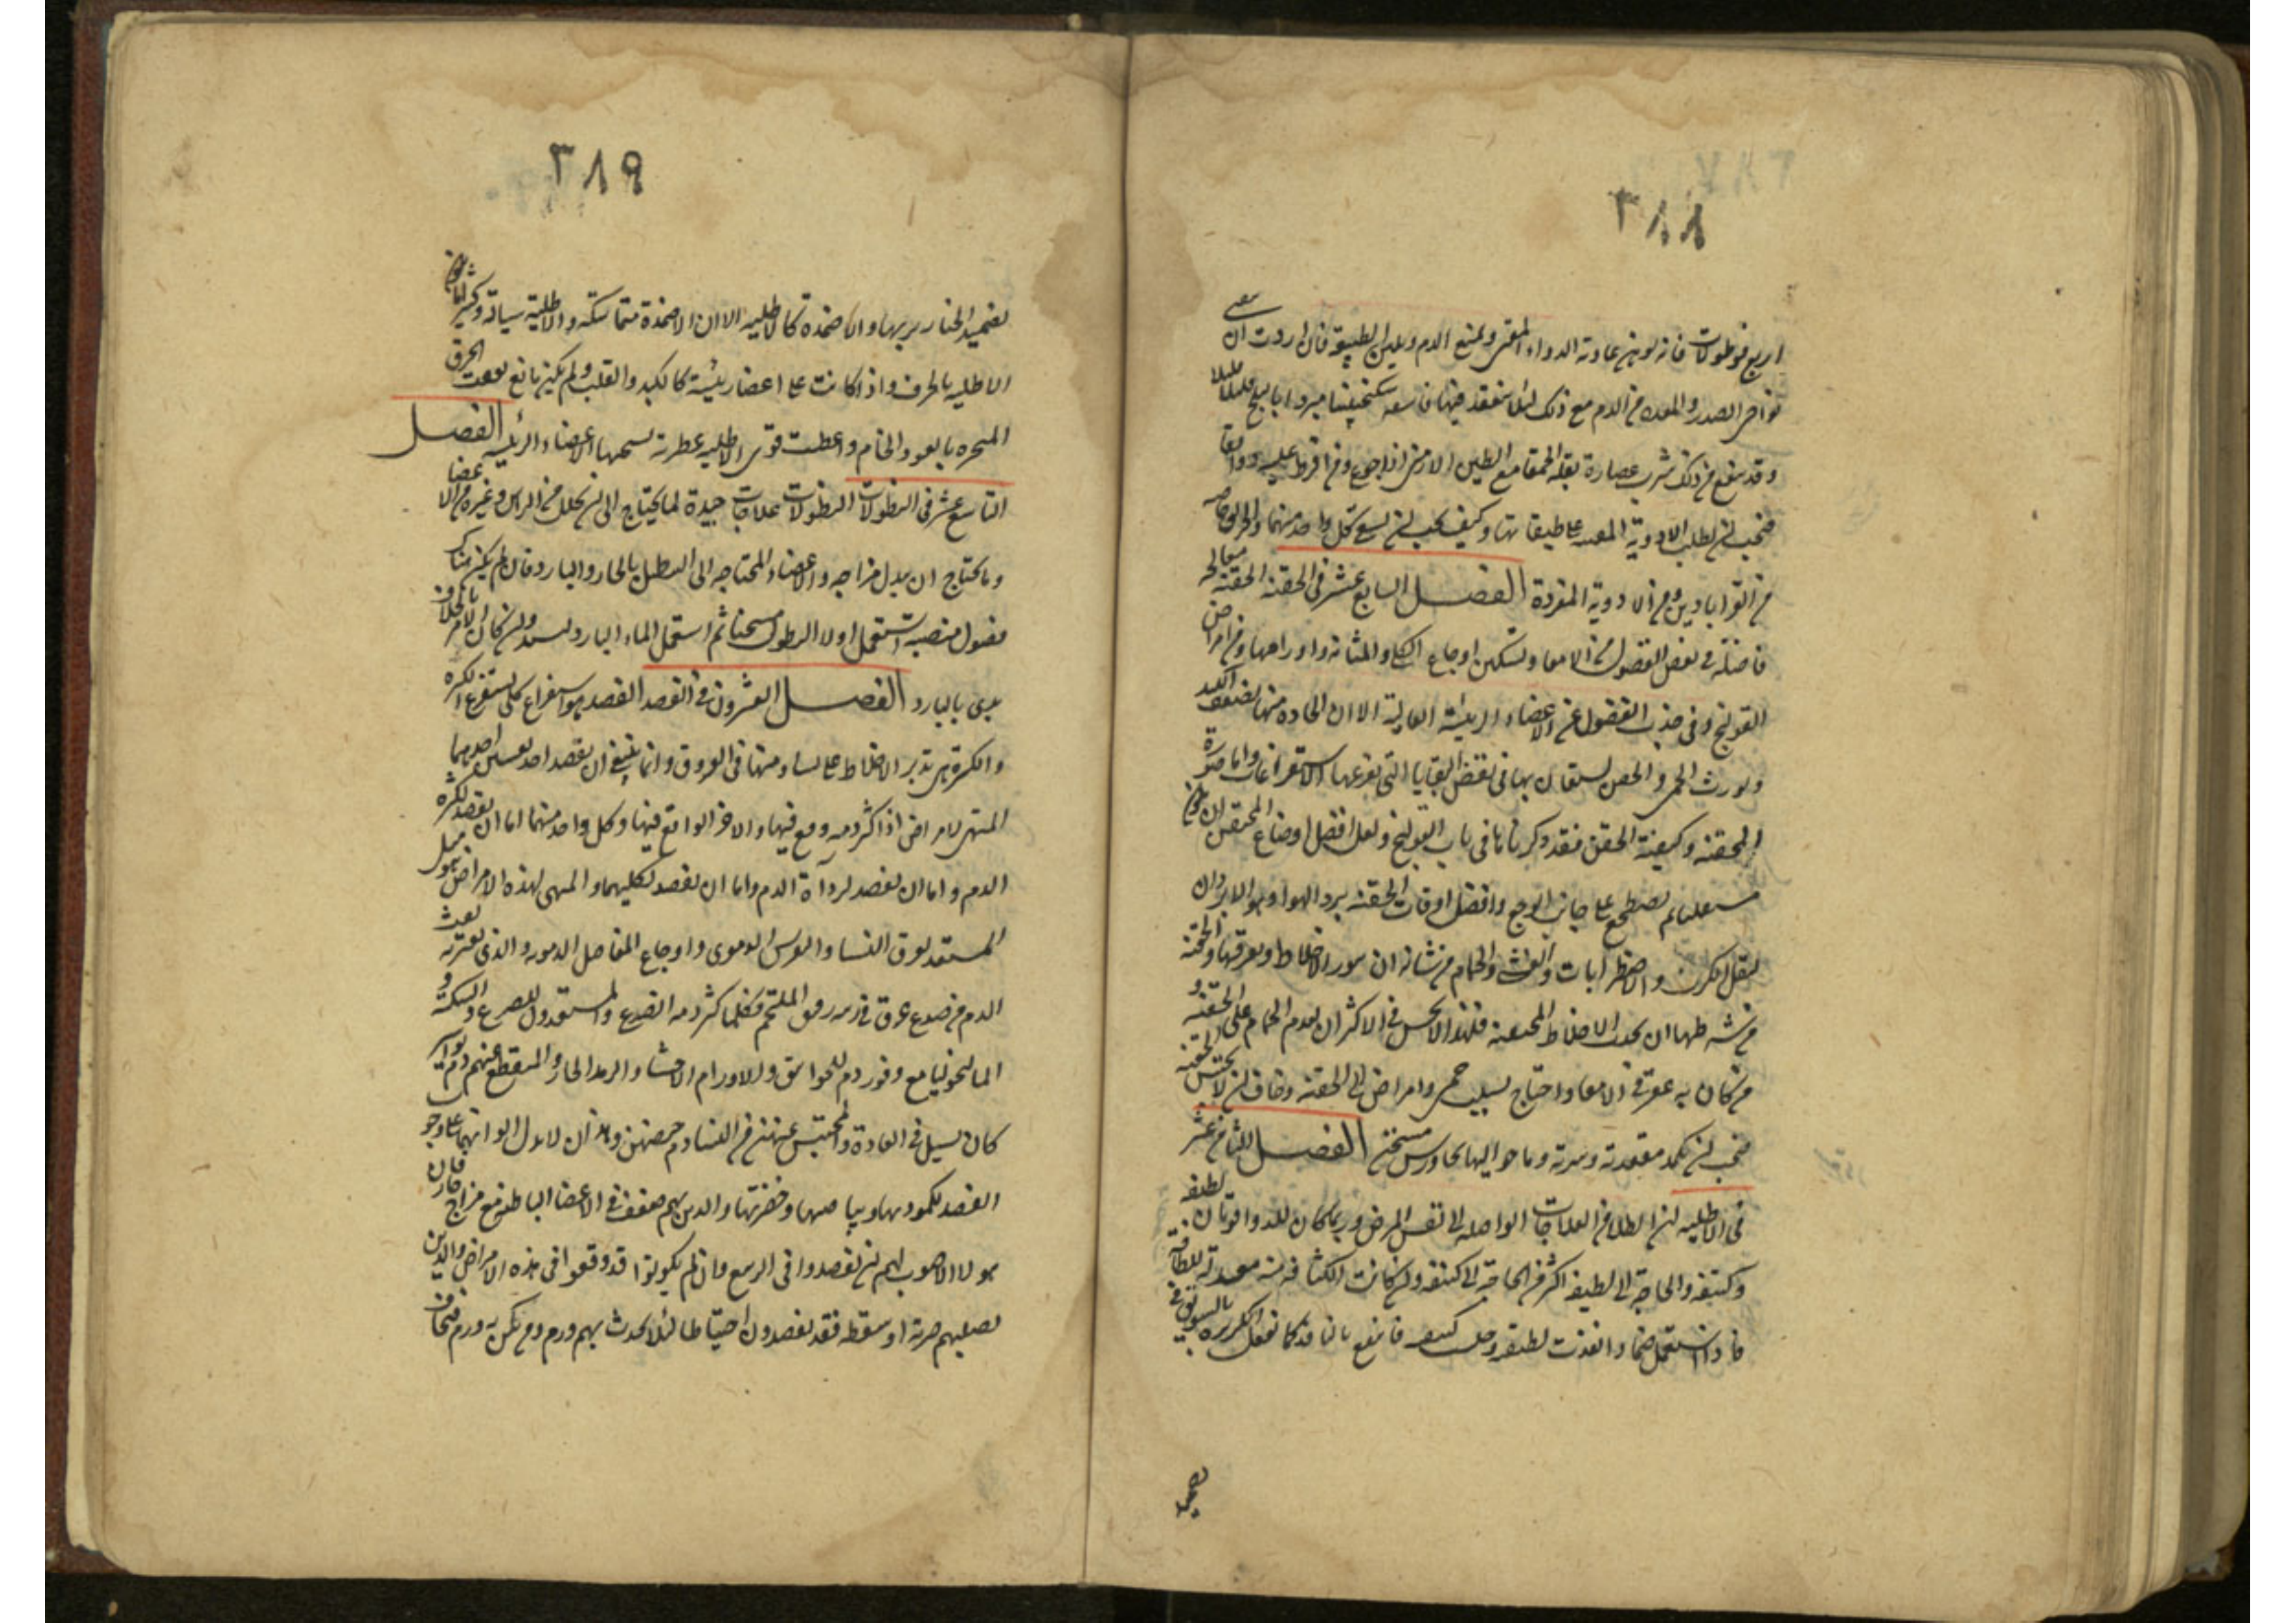 ٣٨٨
اربع قوطولات فانه يوهن عادية الدواء المقئ ويمنع الدم ويلين الطبيعة فان اردت ان تنقى
نواحى الصدر والمعدة من الدم مع ذلك لئلا ينعقد فيها فاسقه سكنجبينا مبردا بالثلج قليلا قليلا
وقد ينفع من ذلك شرب عصارة بقلة الحمقا مع الطين الارمنى
فيجب ان يطلب الادوية المعدة على طبقاتها وكيف يجب ان يسقى كل واحد منها
من القراباذين ومن الادوية المفردة الفصل السابع عشر فى الحقنة الحقنة معالجة
فاضلة فى نفض الفضول من الامعا وتسكين اوجاع الكلى والمثانة واورامها ومن امراض
القولنج وفى جذب الفضول عن الاعضاء الرئيسة العالية الا ان الحادة منها تضعف الكبد
وتورث الحمى والحقن يستعان بها فى نفض البقايا التى تفرغها الاستفراغات واما صورة
المحقنة وكيفية الحقن فقد ذكرناها فى باب القولنج ولعل افضل اوضاع المحتقن ان يكون
مستلقيا ثم يضطجع على جانب الوجع وافضل اوقات الحقنة برد الهوا وهو الابردان
ليقل الكرب والاضطرابات والغشى والحمام من شانه ان يثور الاخلاط ويفرقها والحقنة
من شرطها ان تجذب الاخلاط المجتمعة فلهذا لا يحسن فى الاكثر ان يقدم الحمام على الحقنة و
من كان به عقر فى الامعا واحتاج بسبب حمى وامراض الى الحقنة وخاف ان لا يحتبس الحقنة
فيجب ان يكمد مقعدته وسرته وما حواليها بجاورس مسخن الفصل الثامن عشر
فى الاطلية ان الطلا من العلاجات الواصلة الى نفس المرض وربما كان للدوا قوتان لطيفة
وكثيفة والحاجة الى اللطيفة اكثر من الحاجة الى الكثيفة
فاذا استعمل ضمادا نفذت لطيفته وحبس كثيفه فانتفع بالنافذ كما تفعل الكزبرة بالسويق فى
تضميد
٣٨٩
تضميد الخنازير بها والاضمدة كالاطلية الا ان الاضمدة متماسكة والاطلية سيالة وكثيرا ما يكون
الاطلية بالخرق واذا كانت على اعضا رئيسة كالكبد والقلب ولم يكن مانع نفعت الخرق
المبخرة بالعود الخام واعطت قوى الاطلية عطرية تستحبها الاعضاء الرئيسة الفصل
التاسع عشر فى النطولات النطولات علاجات جيدة لما يحتاج الى ان يحلل من الراس وغيره من الاعضا
وما يحتاج ان يبدل مزاجه والاعضاء المحتاجه الى التنطيل بالحار والبارد فان لم يكن هناك
فضول منصبة استعمل اولا النطول مسخنا ثم استعمل الماء البارد ليشد وان كان الامر بالخلاف
بدى بالبارد الفصل العشرون فى الفصد الفصد هو استفراغ كلى يستفرغ الكثرة
والكثرة هى تزيد الاخلاط على تساو منها فى العروق وانما ينبغى ان يفصد احد نفسين احدهما
المتهيى لامراض اذا كثر دمه وقع فيها والاخر الواقع فيها وكل واحد منهما اما ان يفصد لكثرة
الدم واما ان يفصد لرداءة الدم واما ان يفصد لكليهما والمتهيى لهذه الامراض هو مثل
المستعد لعرق النسا والنقرس الدموى واوجاع المفاصل الدموية والذى يعتريه نفث
الدم من صدع عرق فى رئته رقيق الملتحم فكلما كثر دمه انصدع والمستعدون للصرع والسكتة و
المالنخوليا مع وفور دم للخوانيق ولاورام الاحشا والرمد الحار والمنقطع عنهم دم بواسير
كان يسيل فى العادة والمحتبس عنهن من النسا دم حيضهن وهذان لا يدل الوانهما على وجوب
الفصد لكمودتها وبياضها وخضرتها والذين بهم ضعف فى الاعضا الباطنة مع مزاج حار فان
هولا الاصوب لهم ان يفصدوا فى الربيع وان لم يكونوا قد وقعوا فى هذه الامراض والذين
تصيبهم ضربة او سقطة فقد يفصدون احتياطا لئلا يحدث بهم ورم ومن يكون به ورم فيخاف